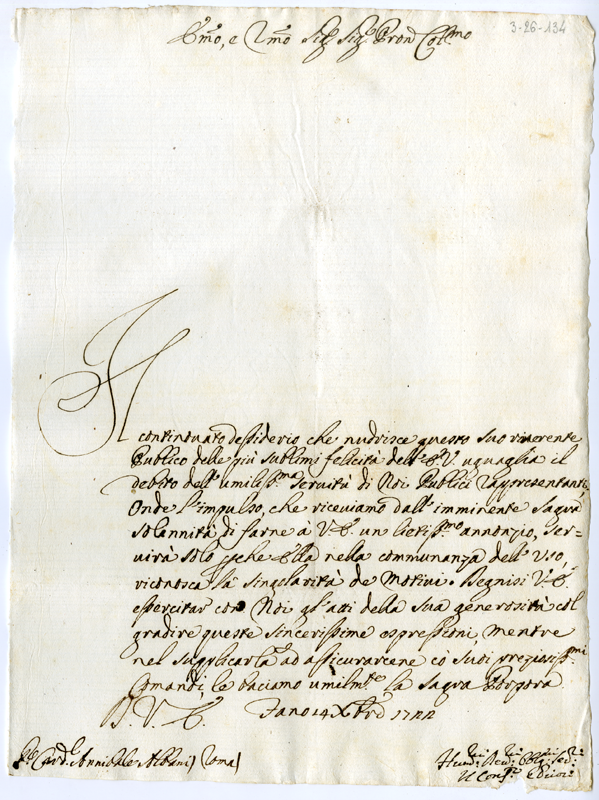 3-26-134
E.mo, e R.mo Sig.r Sig.r Pron Col.mo
Il continouato dessiderio che nudrisce questo suo riverente
Publico delle più sublimi felicità dell'E.V. uguaglia il
debito dell' umiliss.ma servitù di Noi Publici Rappresentanti,
Onde l'impulso, che riceviamo dall' imminente Sagra
solannità di farne à V.E. un lietiss.mo annonzio, ser=
virà solo perche Ella nella communanza dell' uso,
riconosca la singolarità de Motivi. Degnisi V.E.
essercitar con Noi gl'atti della Sua generosità col
gradire queste sincerissime espressioni, mentre
nel supplicarla ad assicurarcene co suoi preziosiss.mi
Comandi, le baciamo umilm.te la Sagra Porpora.
D. V. E. Fano 14 Xbre 1722
Card.l Annibale Albani) Roma)
Hum:mi Dev:mi Obl:mi Ser:ri
Il Conf.re